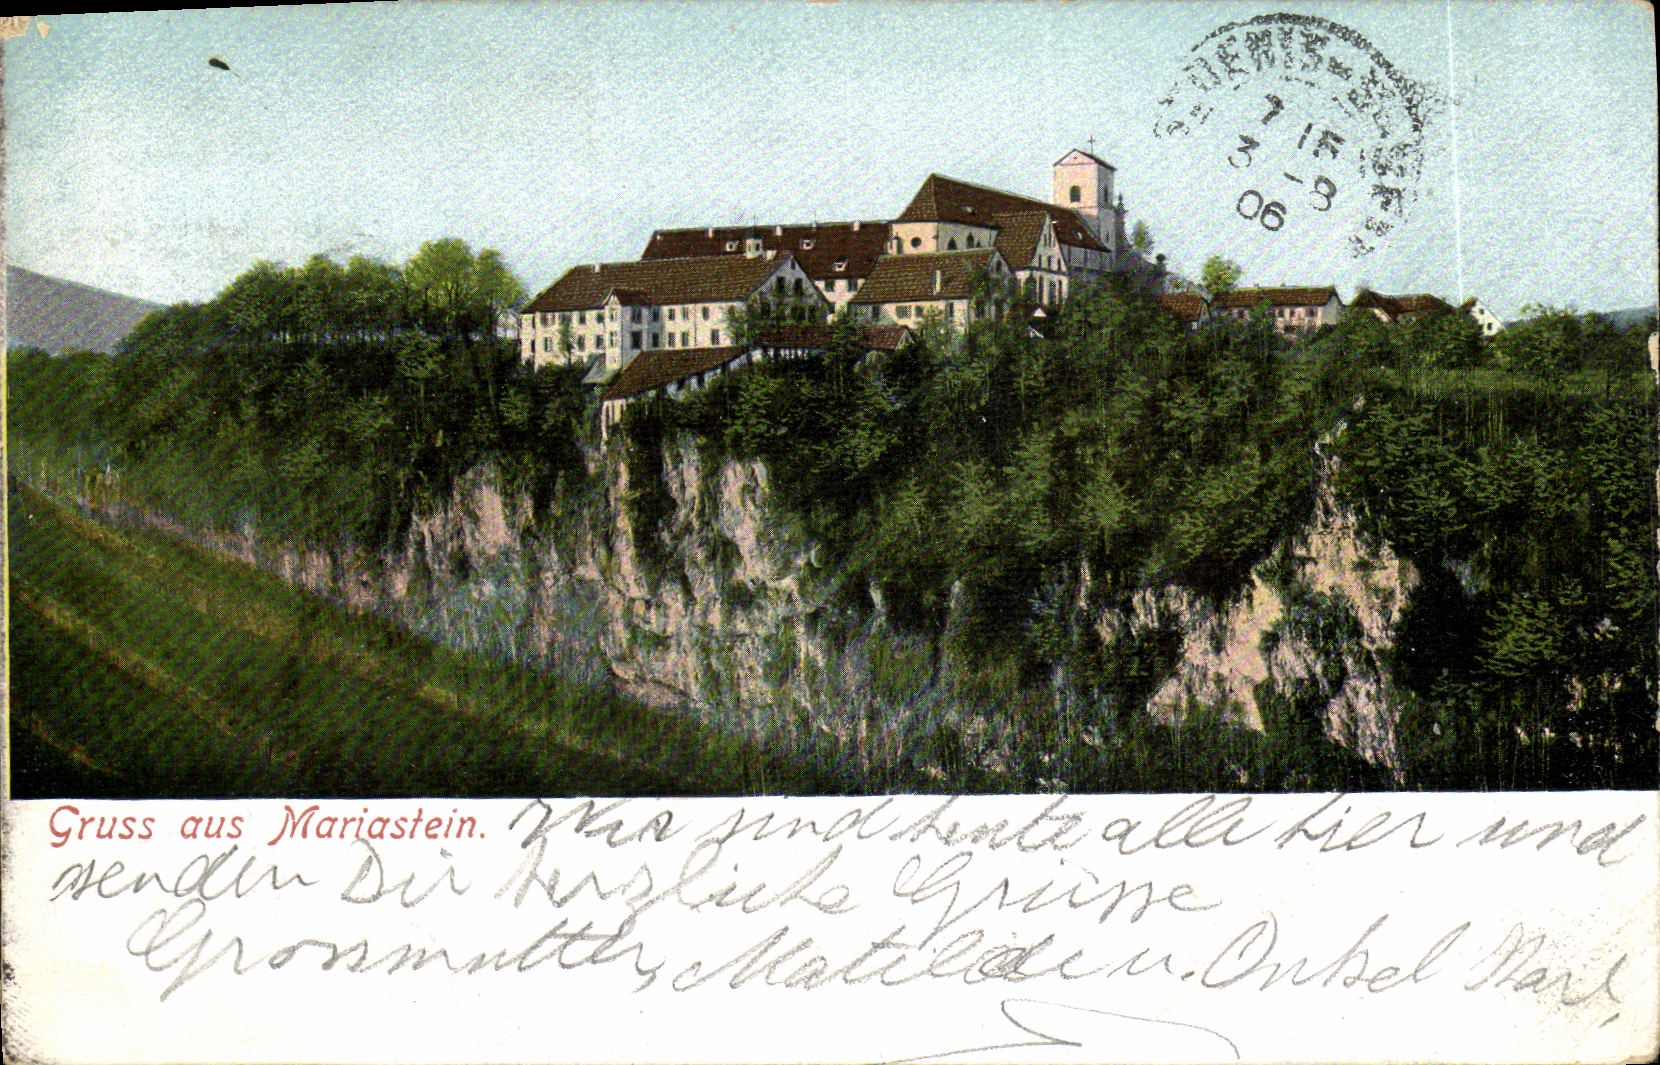 ST DENIS
7 15
3 - 8
06
Gruss aus Mariastein. Wir sind heute alle hier und
senden Dir herzliche Grüsse
Grossmutter, Matilde u. Onkel Karl,